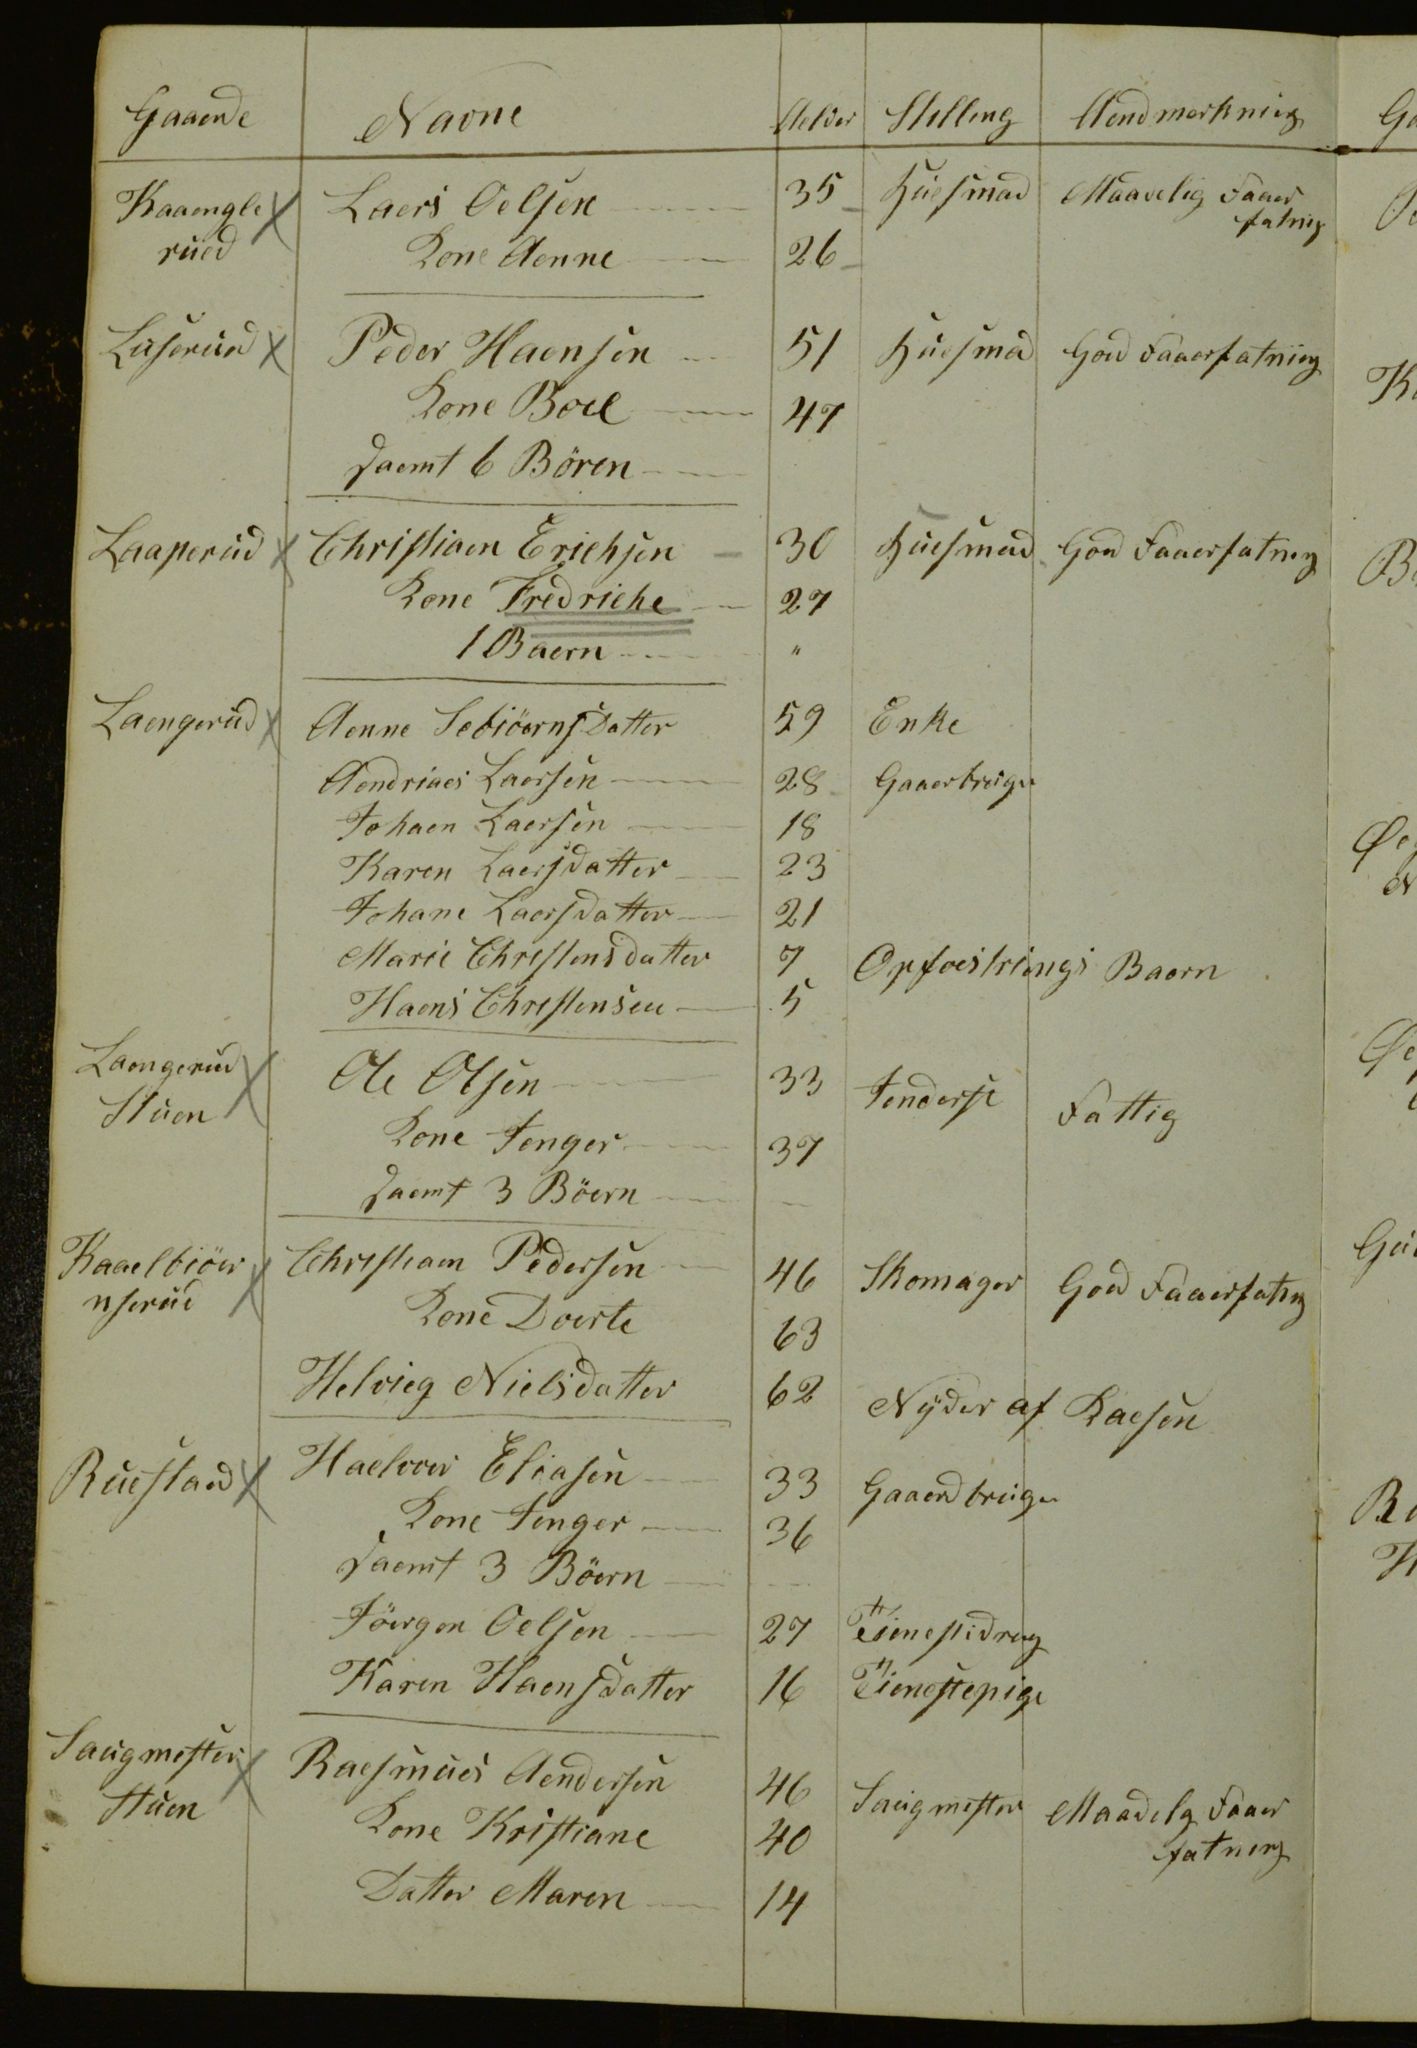 Gaaende Navne Aelder Stelling Aendmerkning
Kaaengle Laers Oelsen 35 Huesmad Maadelig Faaer
rued fatnig
Kone Aenne 26
Luserued Peder Haensen 51 Huesmad God Faaerfatning
Kone Boel 47
Saemt 6 Bören
Laaperud Christiaen Erichsen 30 Huesmad God Faaerfatning
Kone Fredriche 27
1 Baern "
Laengerud Aenne Sebiöerns Datter 59 Enke
Aendriaes Laersen 28 Gaaerbruger
Johaen Laersen 18
Karen Laersdatter 23
Johane Laersdatter 21
Marie Christensdatter 7 Opfoestrings Baern
Haens Christensen 5
Laengerud Ole Olsen 33 Fattig
Stuen
Kone Jenger 37
Saemt 3 Böern
Kaaelbiöer Christiaen Pedersen 46 Skomager God Faaerfatnig
nserud Kone Doerte 63
Helvieg Nielsdatter 62 Nÿder af Kaesen
Ruestaed Haelvoer Eliasen 33 Gaaerdbruger
Kone Jenger 36
Saemt 3 Böern
Jöergen Oelsen 27 Tienestdreng
Karen Haensdatter 16 Tienestepige
Saugmester Raesmues Aendersen 46 Saugmester Maadelg Faaer
Stuen fatning
Kone Kristiane 40
Datter Maren 14